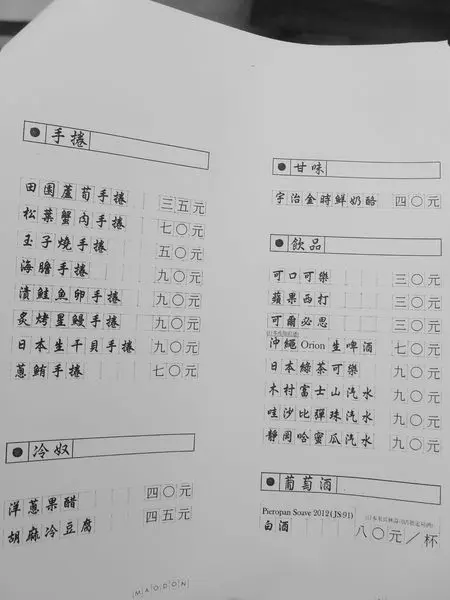 手捲
田園蘆荀手捲 三五元
松葉蟹肉手捲 七〇元
玉子燒手捲 五〇元
海膽手捲 九〇元
漬鮭魚卵手捲 九〇元
炙烤星鰻手捲 九〇元
日本生干貝手捲 九〇元
蔥鮪手捲 七〇元
冷奴
洋蔥果醋 四〇元
胡麻冷豆腐 四五元
MAODON
甘味
宇治金時鮮奶酪 四〇元
飲品
可口可樂 三〇元
蘋果西打 三〇元
可爾必思 三〇元
沖繩 Orion 生啤酒 七〇元
日本綠茶可樂 九〇元
木村富士山汽水 九〇元
哇沙比彈珠汽水 九〇元
靜岡哈蜜瓜汽水 九〇元
葡萄酒
Pieropan Soave 2012 (JS-91)
白酒 八〇元／杯